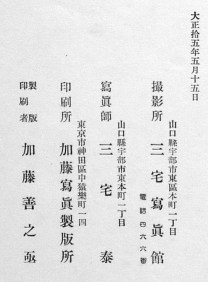 大正拾五年五月十五日
山口縣宇部市東區本町一丁目
撮影所 三宅寫眞館
電話四六六番
山口縣宇部市東本町一丁目
寫眞師 三宅泰
東京市神田區中猿樂町一四
印刷所 加藤寫眞製版所
製版印刷者 加藤善之亟